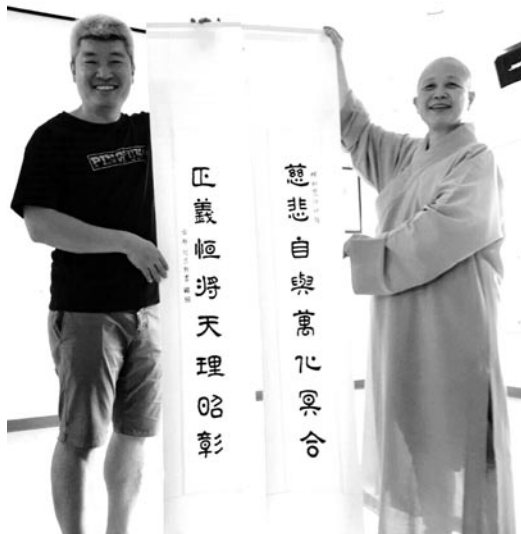 慈悲自與萬化冥合
正義恒將天理昭彰